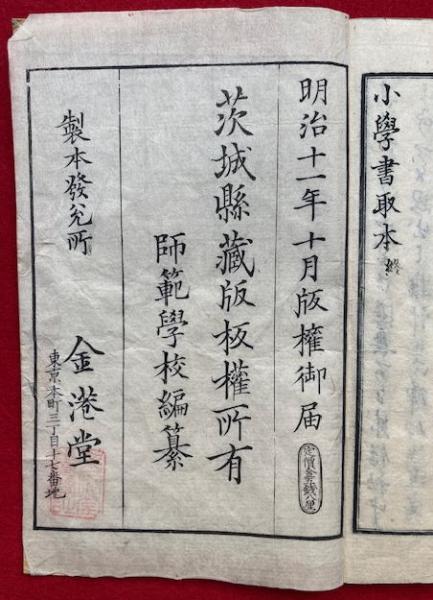 小學書取本 終
明治十一年十月版權御届
定價壹錢八厘
茨城縣藏版板權所有
師範學校編纂
製本發兌所
金港堂
東京本町三丁目十七番地